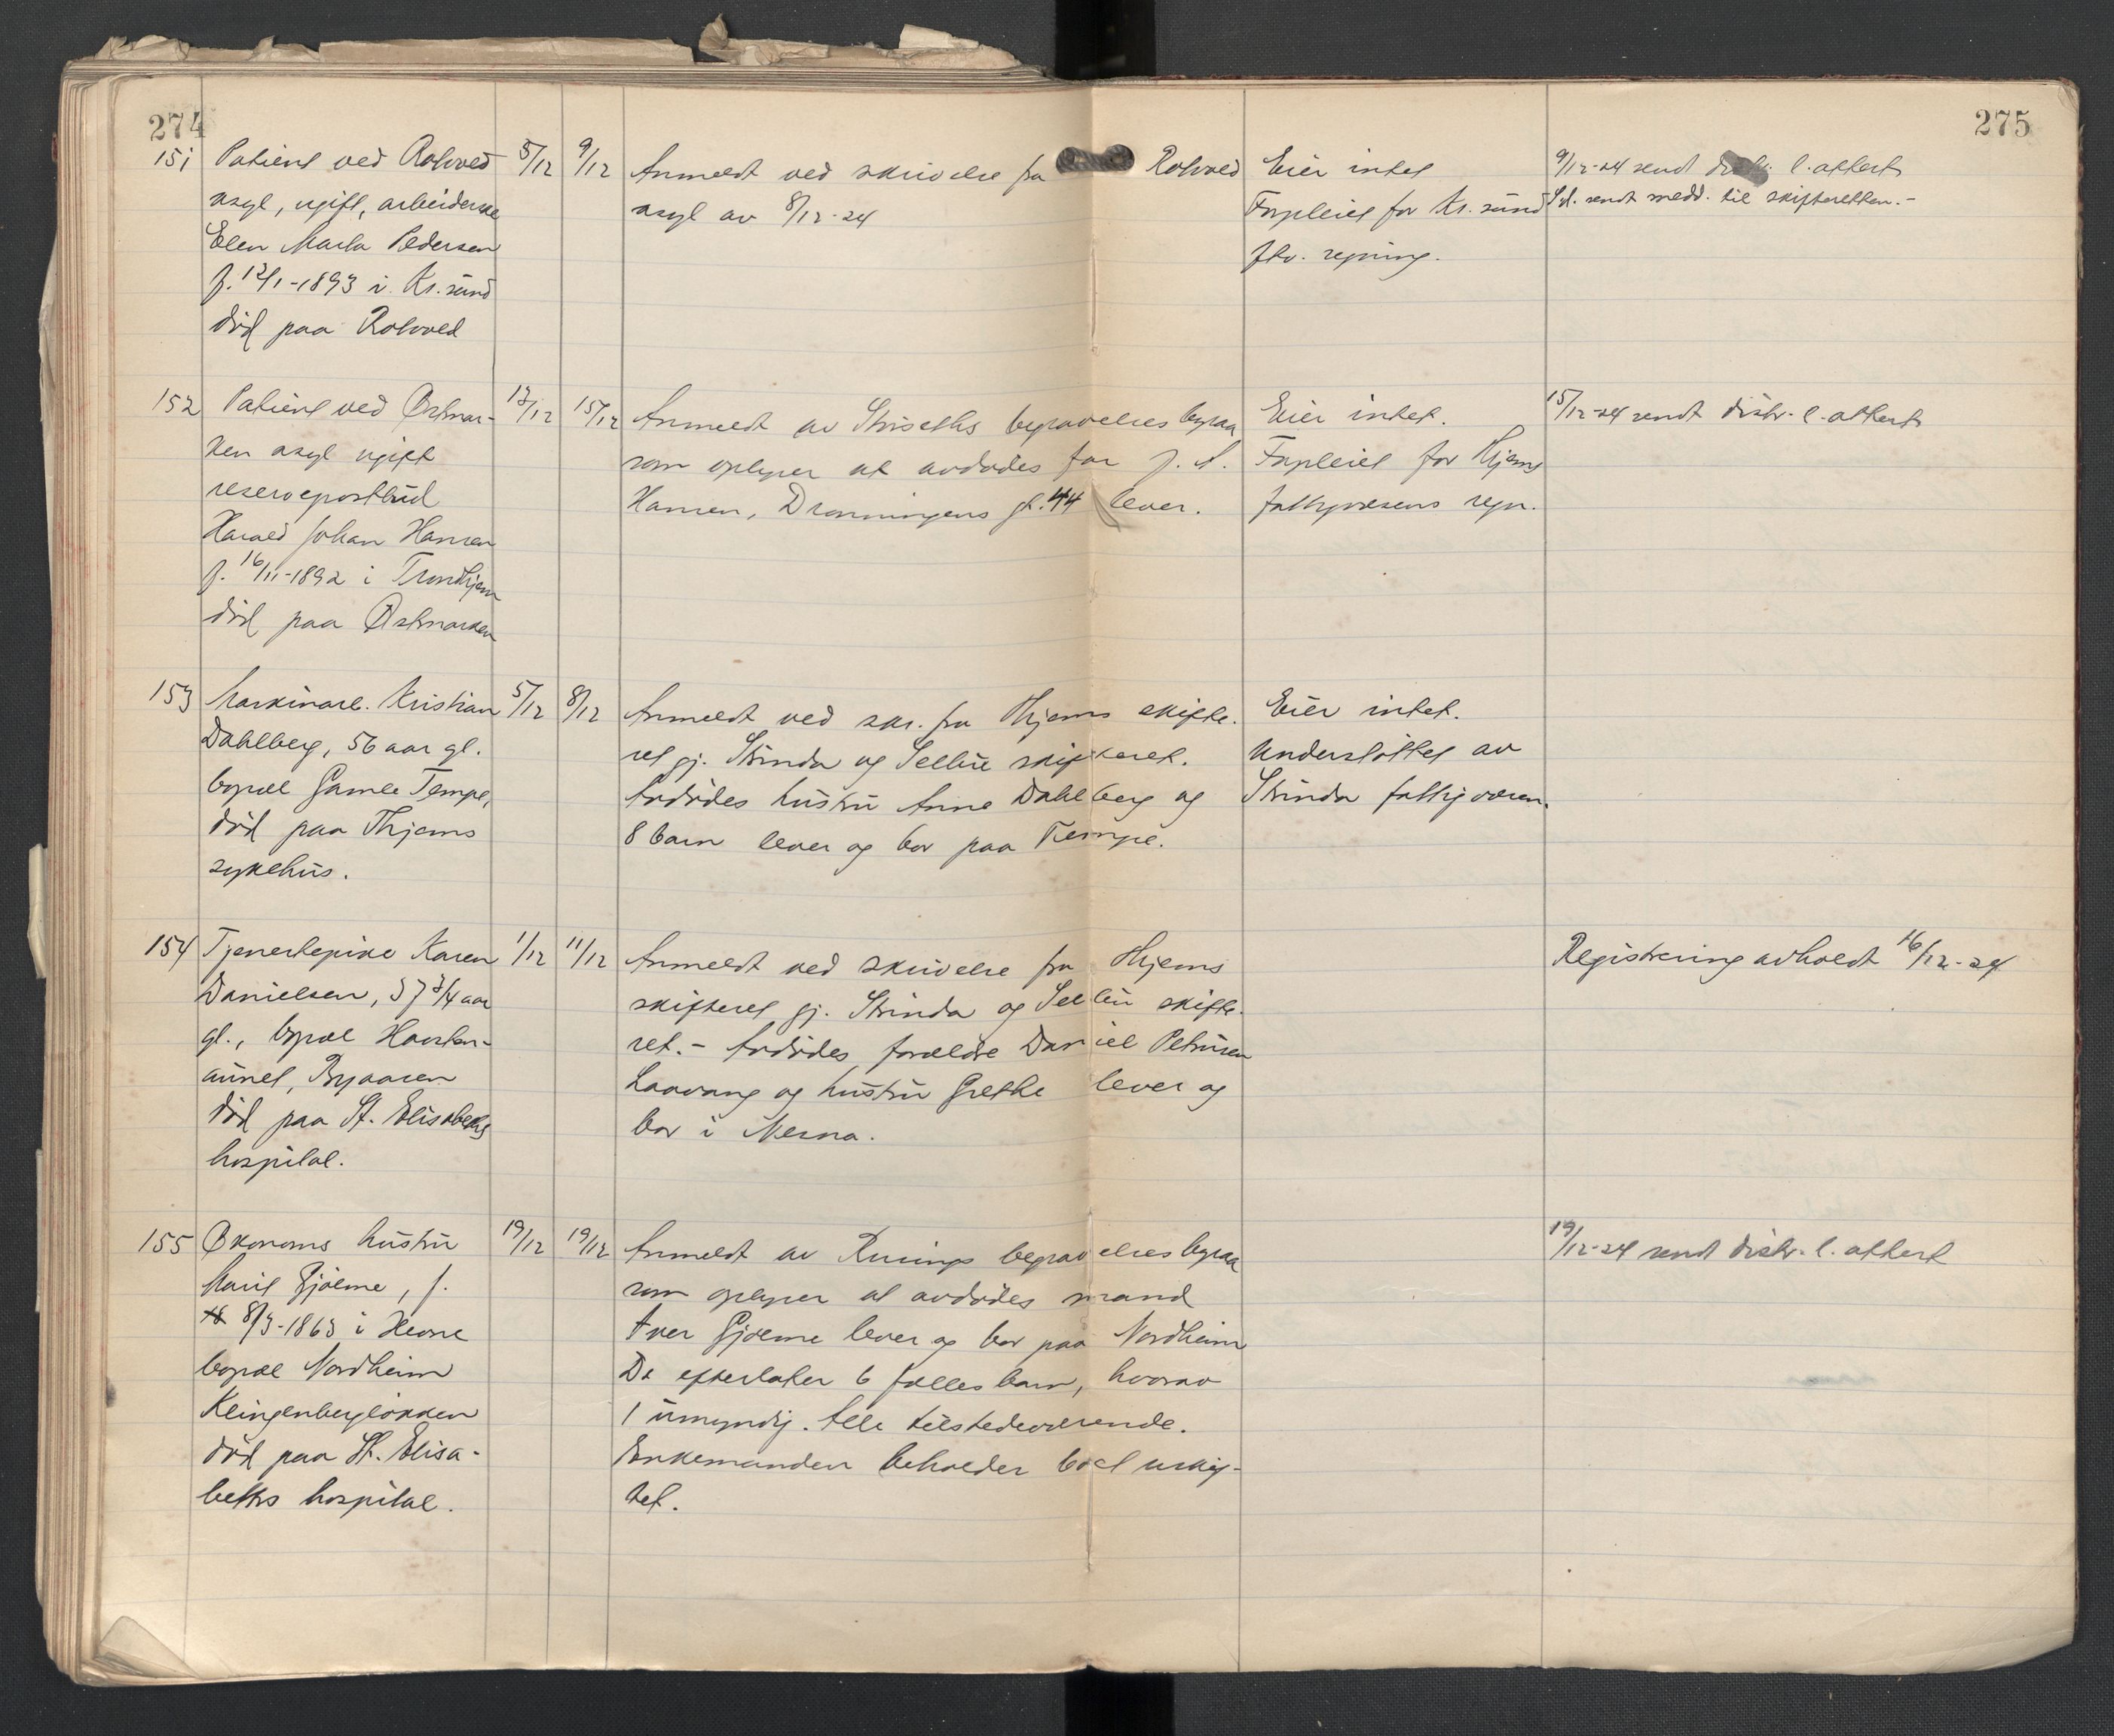 274
275
151
Patient ved Rotvoll
asyl, ugift, arbeiderske
Elen Marta Pedersen
f. 12/1-1893 i Kr.sund
död paa Rotvoll
5/12
9/12
Anmeldt ved skrivelse fra Rotvoll
asyl av 8/12-24
Eier intet
Forpleiet for Kr.sund
ftv. regning.
9/12-24 sendt distr. l.attest
S.d. sendt medd. til skifteretten.-
152
Patient ved Østmar-
ken asyl ugift
reservepostbud
Harald Johan Hansen
f. 16/11-1892 i Trondhjem
död paa Østmarken
12/12
15/12
Anmeldt av Striseths begravelsesbyraa
som oplyser at avdødes far J. A.
Hansen, Dronningens gt. 44 lever.
Eier intet.
Forpleiet for Thjems
fattigvæsens regn.
15/12-24 sendt distr. l. attest
153
Maskinarb. Kristian
Dahlberg, 56 aar gl.
bopæl Gamle Tempe,
död paa Thjems
sykehus.
5/12
8/12
Anmeldt ved skr. fra Thjems skifte-
ret gj. Strinda og Selbu skifteret.
Avdödes hustru Anne Dahlberg og
8 barn lever og bor paa Tempe.
Eier intet.
Understöttet av
Strinda fattigvæsen.
154
Tjenestepike Karen
Danielsen, 57 3/4 aar
gl., bopæl Havstein-
aunet, Byaasen
död paa St. Elisabeths
hospital.
1/12
11/12
Anmeldt ved skrivelse fra Thjems
skifteret gj. Strinda og Selbu skifte-
ret.- Avdödes forældre Daniel Petersen
Laavang og hustru Grethe lever og
bor i Nesna.
Registrering avholdt 16/12-24
155
Økonoms hustru
Marit Gjölme, f.
8/3-1863 i Hevne
bopæl Nordheim
Klingenberglökken
död paa St. Elisa-
beths hospital.
19/12
19/12
Anmeldt av Rusings begravelsesbyraa
som oplyser at avdödes mand
Iver Gjölme lever og bor paa Nordheim
De efterlater 6 fælles barn, hvorav
1 umyndig. Alle tilstedeværende.
Enkemanden beholder boet uskif-
tet.
19/12-24 sendt distr. l. attest